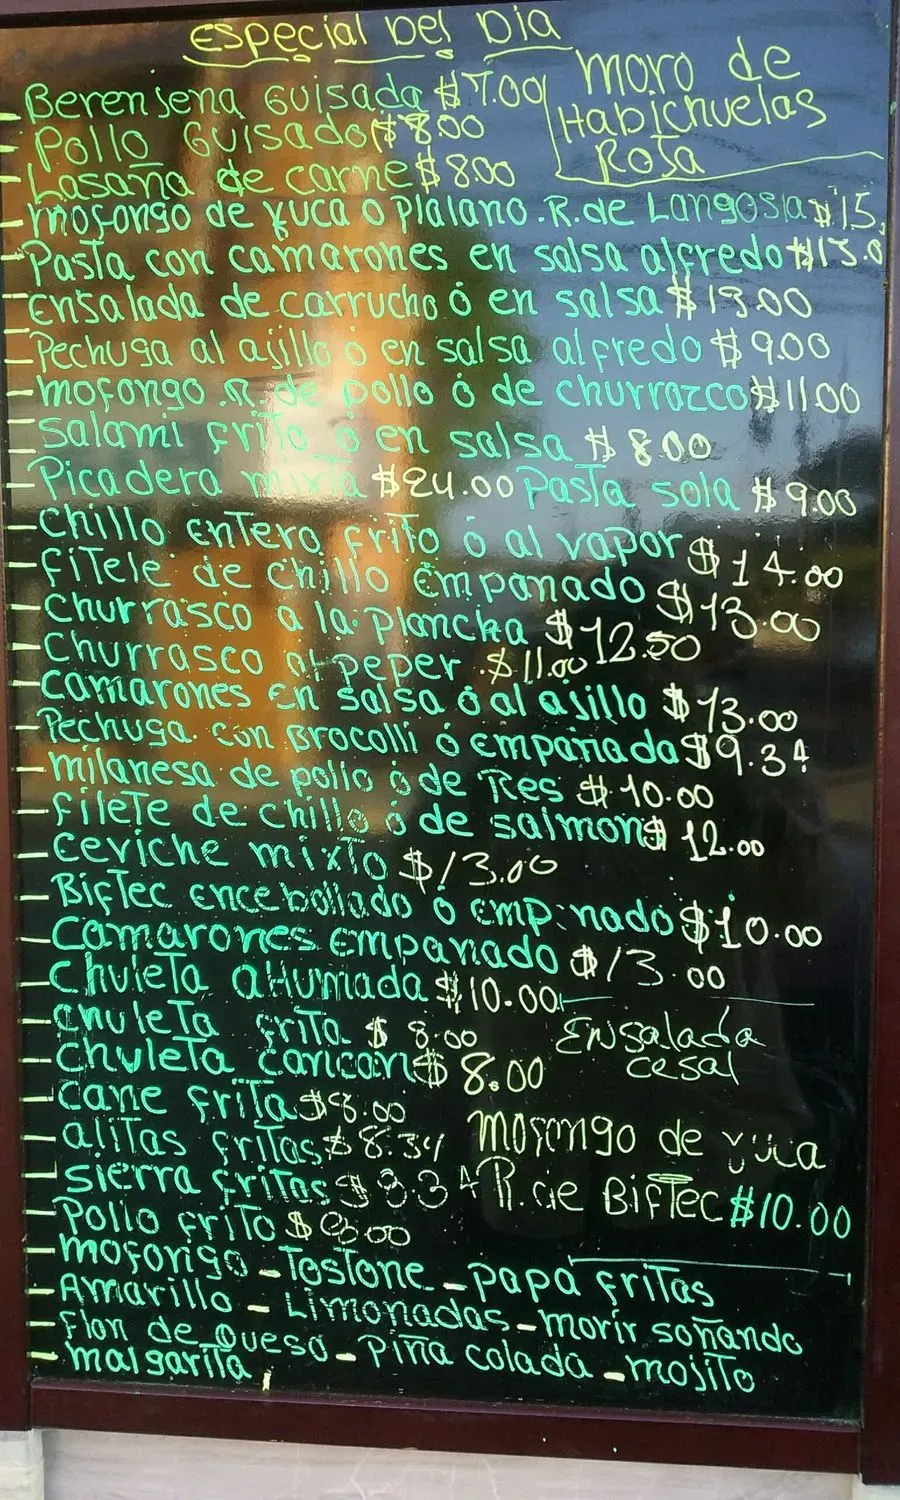 Especial Del Dia
Berenjena Guisada $7.00
Pollo Guisado $8.00
Lasaña de carne $8.00
Moro de
Habichuelas
Rosa
mofongo de yuca o platano .R. de Langosta $15.
Pasta con camarones en salsa alfredo $13.0
Ensalada de carrucho ó en salsa $13.00
Pechuga al ajillo ó en salsa alfredo $9.00
mofongo .R. de pollo ó de churrazco $11.00
salami frito ó en salsa $8.00
Picadera mixta $24.00 Pasta sola $9.00
Chillo entero frito ó al vapor $14.00
fitele de chillo empanado $13.00
Churrasco a la plancha $12.50
Churrasco al peper $11.00
Camarones en salsa ó al ajillo $13.00
Pechuga con Brocolli ó empanada $9.34
milanesa de pollo ó de Res $10.00
filete de chillo ó de salmon $12.00
ceviche mixto $13.00
Biftec encebollado ó emp nado $10.00
Camarones empanado $13.00
chuleta aHumada $10.00
chuleta frita $8.00
chuleta cancan $8.00
Ensalada
cesal
cane frita $8.00
alitas fritas $8.34
sierra fritas $8.34
Pollo frito $8.00
Mofongo de yuca
R. de Biftec $10.00
mofongo - Tostone - papa fritas
Amarillo - Limonadas - morir soñando
flan de queso - Piña colada - mojito
margarita